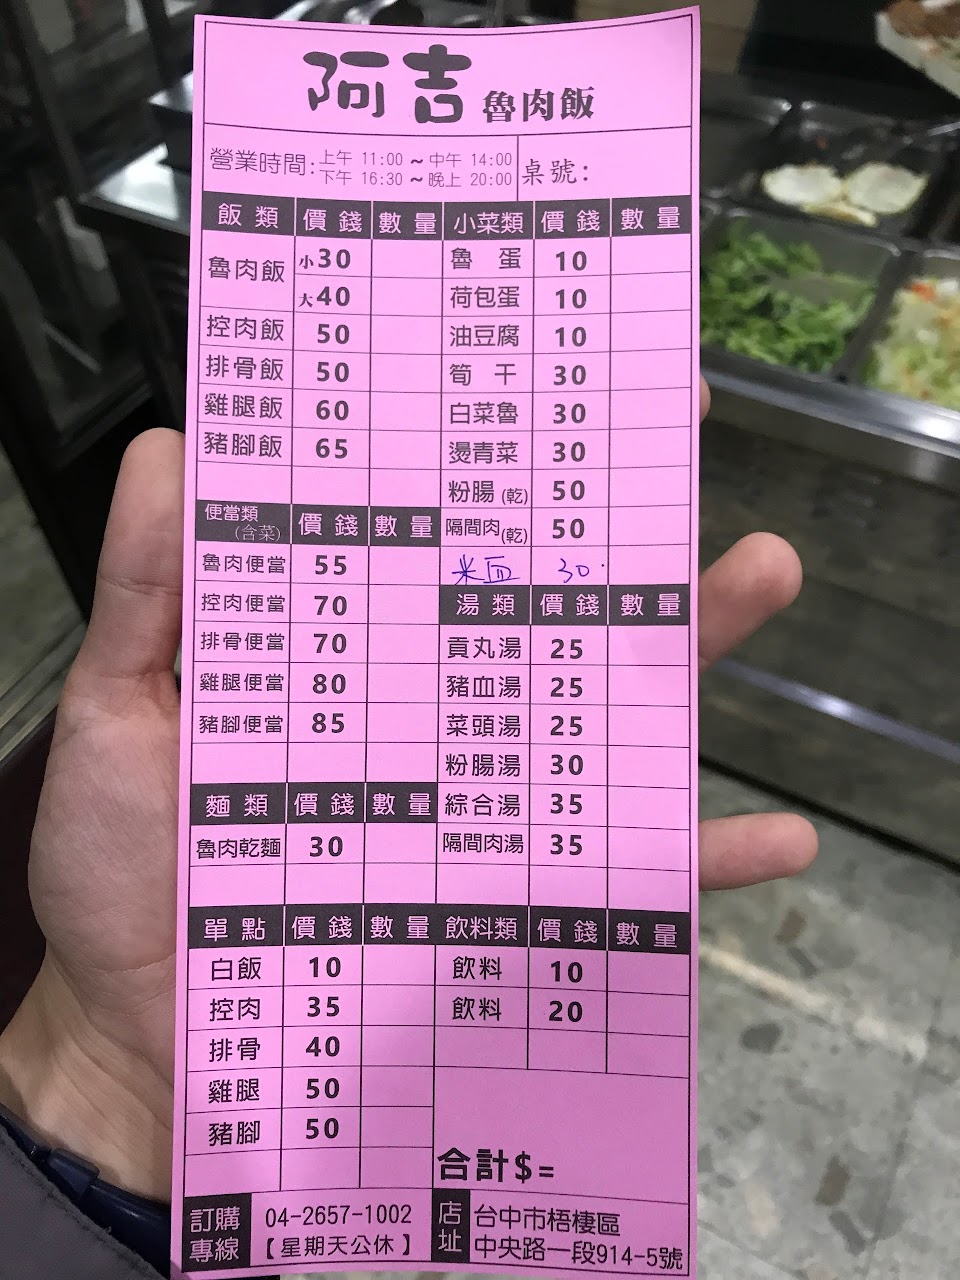 阿吉 魯肉飯
營業時間: 上午 11:00 ~ 中午 14:00
下午 16:30 ~ 晚上 20:00
桌號:
飯類 價錢 數量
魯肉飯 小30
大40
控肉飯 50
排骨飯 50
雞腿飯 60
豬腳飯 65
便當類(含菜) 價錢 數量
魯肉便當 55
控肉便當 70
排骨便當 70
雞腿便當 80
豬腳便當 85
麵類 價錢 數量
魯肉乾麵 30
單點 價錢 數量
白飯 10
控肉 35
排骨 40
雞腿 50
豬腳 50
小菜類 價錢 數量
魯蛋 10
荷包蛋 10
油豆腐 10
筍干 30
白菜魯 30
燙青菜 30
粉腸(乾) 50
隔間肉(乾) 50
米血 30
湯類 價錢 數量
貢丸湯 25
豬血湯 25
菜頭湯 25
粉腸湯 30
綜合湯 35
隔間肉湯 35
飲料類 價錢 數量
飲料 10
飲料 20
合計$=
訂購專線 04-2657-1002
【星期天公休】
店址 台中市梧棲區
中央路一段914-5號